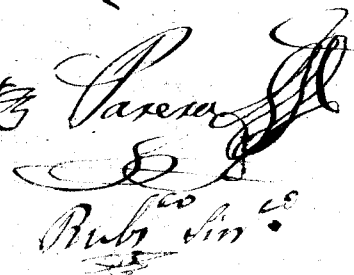 Parera
Rub.co Sin.co